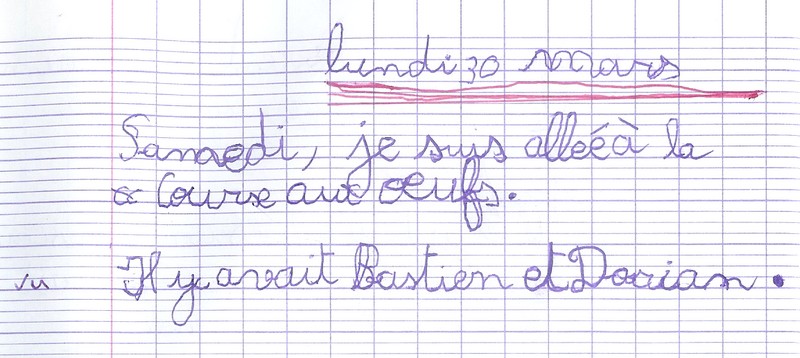 lundi 30 mars
Samedi, je suis alleé à la
course aux oeufs.
vu Il y avait Bastien et Dorian.